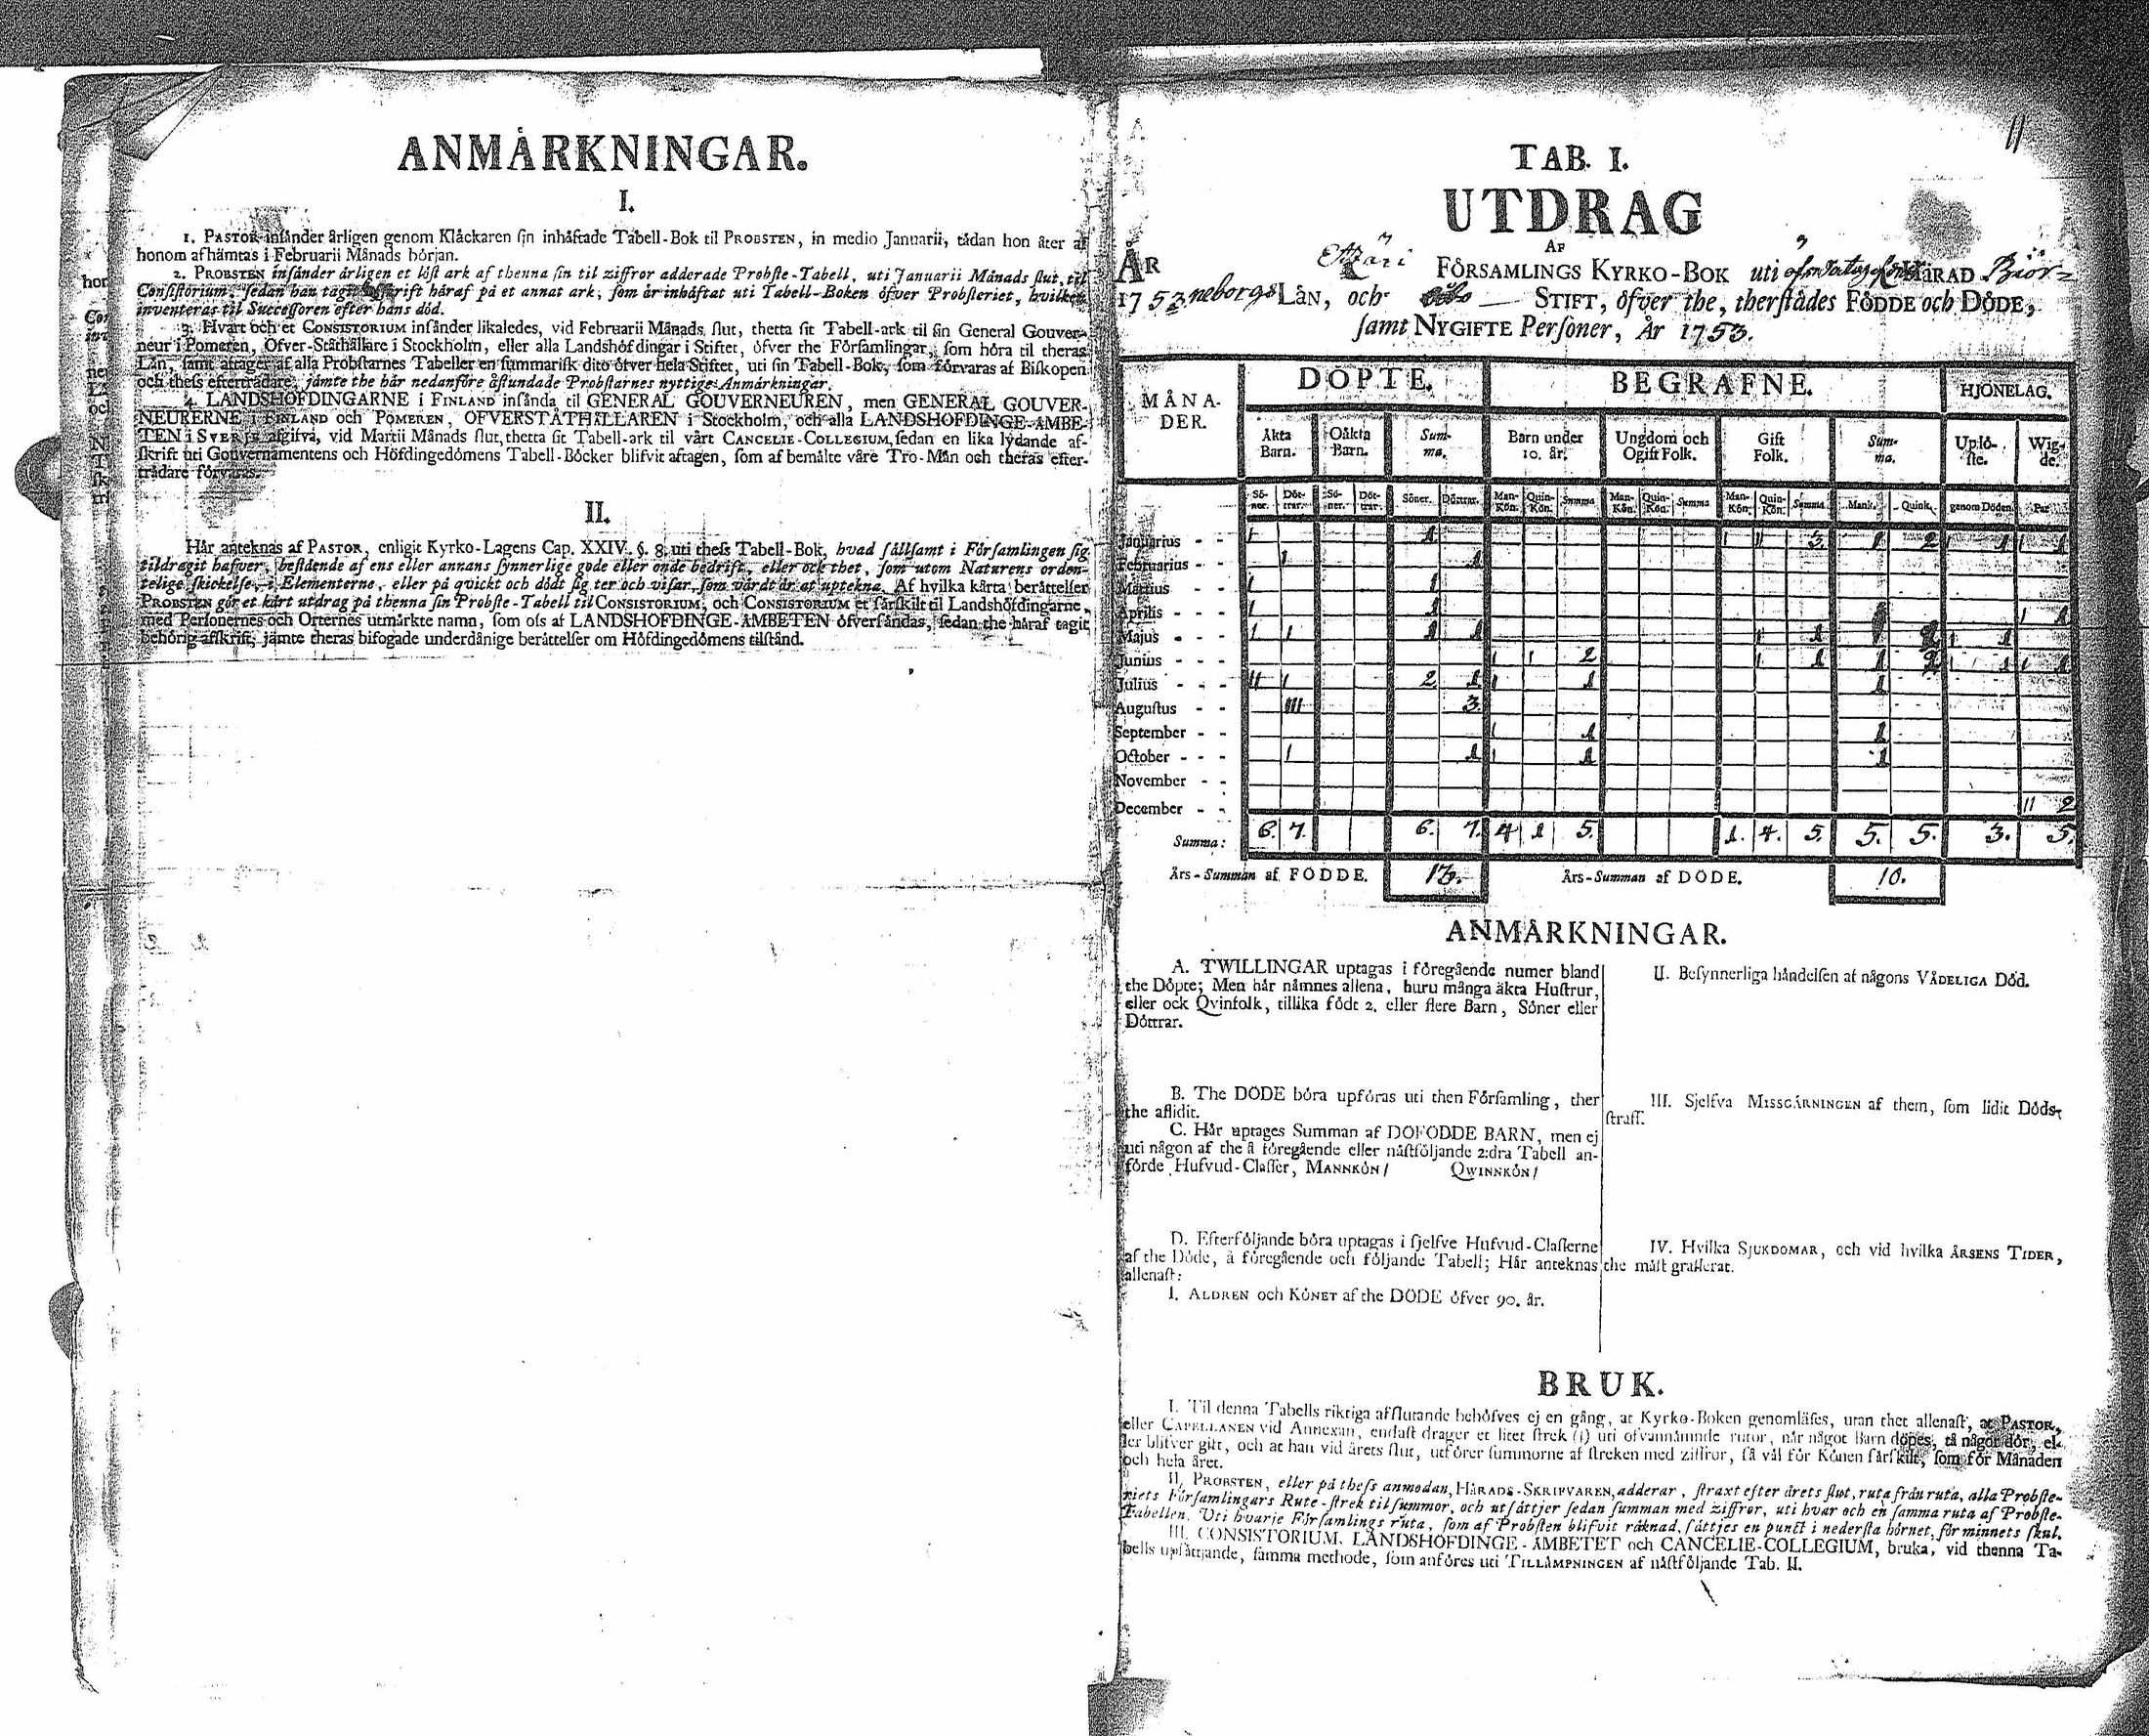 ANMÅRKNINGAR.
I.
1. PASTOR insånder årligen genom Klåckaren sin inhåftade Tabell-Bok til PROBSTEN, in medio Januarii, tådan hon åter af
honom afhåmtas i Februarii Månads början.
2. PROBSTEN insånder årligen et löst ark af thenna sin til ziffror adderade Probste-Tabell, uti Januarii Månads slut, til
Consistorium, sedan han tagit afskrift håraf på et annat ark, som år inhåftat uti Tabell-Boken öfver Probsteriet, hvilken
inventeras til Successoren efter hans död.
3. Hvart och et CONSISTORIUM insånder likaledes, vid Februarii Månads slut, thetta sit Tabell-ark til sin General Gouver-
neur i Pomeren, Öfver-Ståthållare i Stockholm, eller alla Landshöfdingar i Stiftet, öfver the Församlingar, som höra til theras
Lån, samt aftager af alla Probstarnes Tabeller en summarisk dito öfver hela Stiftet, uti sin Tabell-Bok, som förvaras af Biskopen
och thess efterträdare, jåmte the hår nedanföre åstundade Probstarnes nyttige Anmårkningar.
4. LANDSHÖFDINGARNE i FINLAND insånda til GENERAL GOUVERNEUREN, men GENERAL GOUVER-
NEURERNE i FINLAND och POMEREN, OFVERSTÅTHÅLLAREN i Stockholm, och alla LANDSHÖFDINGE-ÅMBE-
TEN i SVERJE afgifva, vid Martii Månads slut, thetta sit Tabell-ark til vårt CANCELIE-COLLEGIUM, sedan en lika lydande af-
skrift uti Gouvernamentens och Höfdingedömens Tabell-Böcker blifvit aftagen, som af bemålte våre Tro-Mån och theras efter-
trådare förvaras.
II.
Hår anteknas af PASTOR, enligit Kyrko-Lagens Cap. XXIV. §. 8. uti thess Tabell-Bok, hvad sållsamt i Församlingen sig
tildragit hafver, bestående af ens eller annans synnerlige gode eller onde bedrift, eller ock thet, som utom Naturens orden-
telige skickelse, i Elementerne, eller på qvickt och dödt sig ter och visar, som vårdt år at uptekna. Af hvilka kårta beråttelser
PROBSTEN gör et kårt utdrag på thenna sin Probste-Tabell til CONSISTORIUM, och CONSISTORIUM et sårskilt til Landshöfdingarne,
med Personernes och Orternes utmårkte namn, som oss af LANDSHÖFDINGE-ÅMBETEN öfversåndas, sedan the håraf tagit
behörig afskrift, jåmte theras bifogade underdånige beråttelser om Höfdingedömens tilstånd.
11
TAB. I.
UTDRAG
AF
ÅR Ettsäri FÖRSAMLINGS KYRKO-BOK uti HÅRAD Biör-
1753 neborgs LÅN, och Åbo STIFT, öfver the, therstådes FÖDDE och DÖDE,
samt NYGIFTE Personer, År 1753.
MÅNA-
DER.
DÖPTE. BEGRAFNE. HJONELAG.
Åkta Barn. Oåkta Barn. Sum-ma. Barn under 10. år. Ungdom och Ogift Folk. Gift Folk. Sum-ma. Uplö-ste. Wig-de.
Sö-ner. Döt-trar. Sö-ner. Döt-trar. Söner. Döttrar. Man-Kön. Quin-Kön. Summa Man-Kön. Quin-Kön. Summa Man-Kön. Quin-Kön. Summa Mank. Quink. genom Döden Par
Januarius - - I 1 I II 3. 1 2 I 1 I 1
Februarius - - I 1
Martius - - I 1
Aprilis - - - I 1 I 1
Majus - - - I I 1 1 I 1 I 1
Junius - - - I I 2 I 1 1 2 I 1 I 1
Julius - - - II I 2 1 I 1 1
Augustus - - III 3.
September - - I 1 1
October - - - I 1 I 1 1
November - -
December - - II 2
Summa: 6. 7. 6. 7. 4 1 5. 1. 4. 5. 5. 5. 3. 5.
Års-Summan af FÖDDE. 13. Års-Summan af DÖDE. 10.
ANMÅRKNINGAR.
A. TWILLINGAR uptagas i föregående numer bland
the Döpte; Men hår nåmnes allena, huru många åkta Hustrur,
eller ock Qvinfolk, tillika födt 2. eller flere Barn, Söner eller
Döttrar.
B. The DÖDE böra upföras uti then Församling, ther
the aflidit.
C. Hår uptages Summan af DÖFÖDDE BARN, men ej
uti någon af the å föregående eller nåstföljande 2:dra Tabell an-
förde Hufvud-Classer, MANNKÖN/ QWINNKÖN/
D. Efterföljande böra uptagas i sjelfve Hufvud-Classerne
af the Döde, å föregående och följande Tabell; Hår anteknas
allenast:
I. ÅLDREN och KÖNET af the DÖDE öfver 90. år.
II. Besynnerliga håndelsen af någons VÅDELIGA Död.
III. Sjelfva MISSGÅRNINGEN af them, som lidit Döds-
straff.
IV. Hvilka SJUKDOMAR, och vid hvilka ÅRSENS TIDER,
the måst grasserat.
BRUK.
I. Til denna Tabells riktiga afslutande behöfves ej en gång, at Kyrko-Boken genomläses, utan thet allenast, at PASTOR,
eller CAPELLANEN vid Annexan, endast drager et litet strek (1) uti ofvannåmnde rutor, når något Barn döpes, få någor dör, el-
ler blifver gift, och at han vid årets slut, utförer summorne af streken med ziffror, så vål för Könen sårskilt, som för Månaden
och hela året.
II. PROBSTEN, eller på thess anmodan, HÅRADS-SKRIFVAREN, adderar, straxt efter årets slut, ruta från ruta, alla Probste-
riets Församlingars Rute-strek til summor, och utsåttjer sedan summan med ziffror, uti hvar och en samma ruta af Probste-
Tabellen. Uti hvarje Församlings ruta, som af Probsten blifvit råknad, såttjes en punct i nedersta hörnet, för minnets skul.
III. CONSISTORIUM, LANDSHÖFDINGE-ÅMBETET och CANCELIE-COLLEGIUM, bruka, vid thenna Ta-
bells upsåttjande, samma methode, som anföres uti TILLÅMPNINGEN af nåstföljande Tab. II.